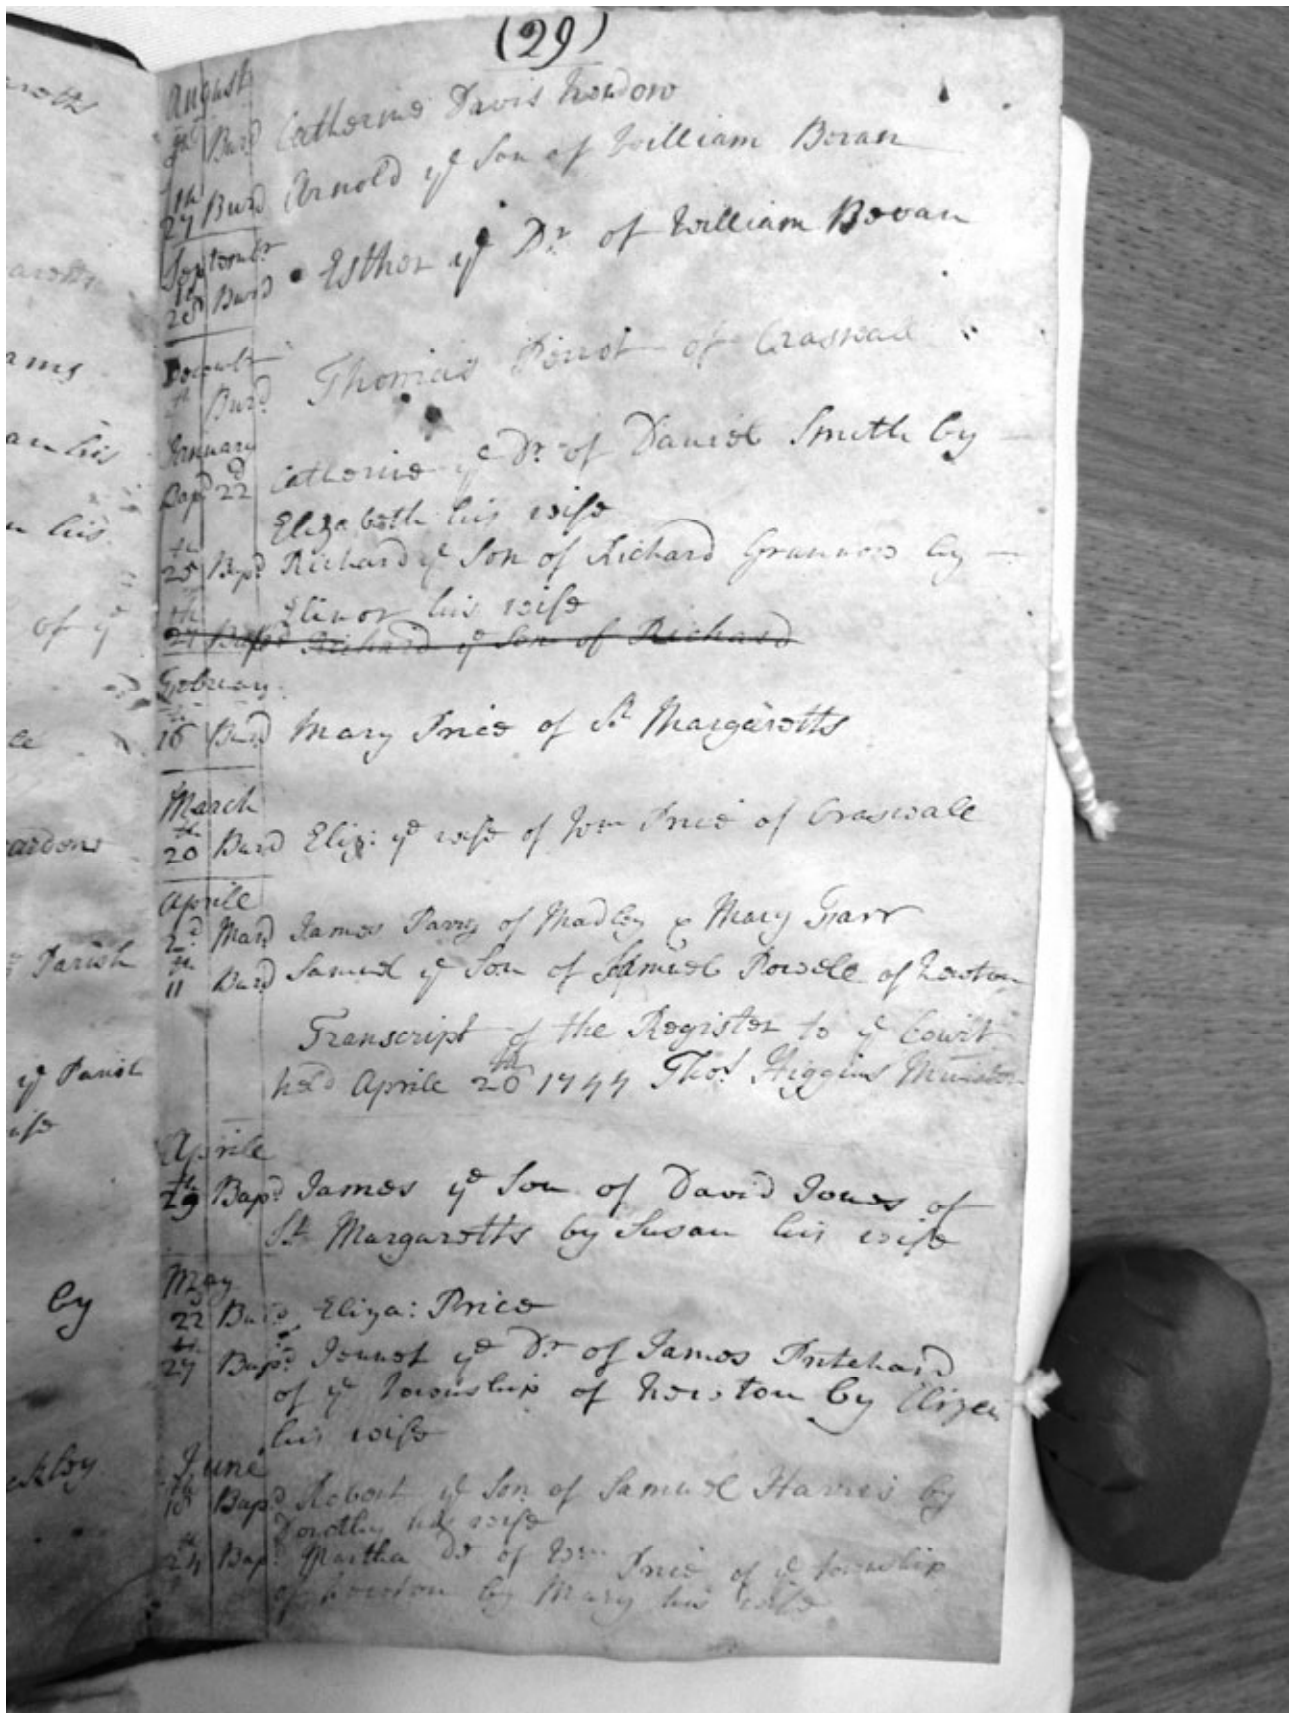 (29)
August
Burd Catherine Davis
27th Burd Arnold ye Son of William Bevan
Septembr
28th Burd Esther ye Dr of William Bevan
Decembr
th Burd Thomas Perrot of Craswall
January
Bapd 22d Catherine ye Dr of Daniel Smith by
Elizabeth his wife
25th Bapd Richard ye Son of Richard by
Elinor his wife
27th Bapd Richard ye Son of Richard
February
16th Burd Mary Price of St Margaretts
March
20th Burd Eliz: ye wife of Wm Price of Craswale
Aprile
2d Mard James Parry of Madley & Mary Farr
11th Burd Samuel ye Son of Samuel Powele of Newton
Transcript of the Register to ye Court
held Aprile 20th 1744 Thos Higgins Minister
Aprile
29th Bapd James ye Son of David Jones of
St Margaretts by Susan his wife
May
22d Burd Eliza: Price
27th Bapd Jennet ye Dr of James Pritchard
of ye Township of Newton by Elizea
his wife
June
10th Bapd Robert ye Son of Samuel Harris by
Dorothy his wife
24th Bapd Martha Dr of Wm Price of ye township
of Newton by Mary his wife
ams
an his
n his
of ye
Parish
ye Parish
by